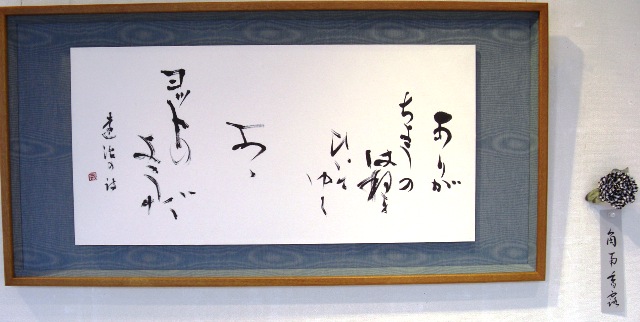 ありが
ちょうの
はねを
ひいて
ゆく
ああ
ヨットの
ようだ
達治の詩
角南